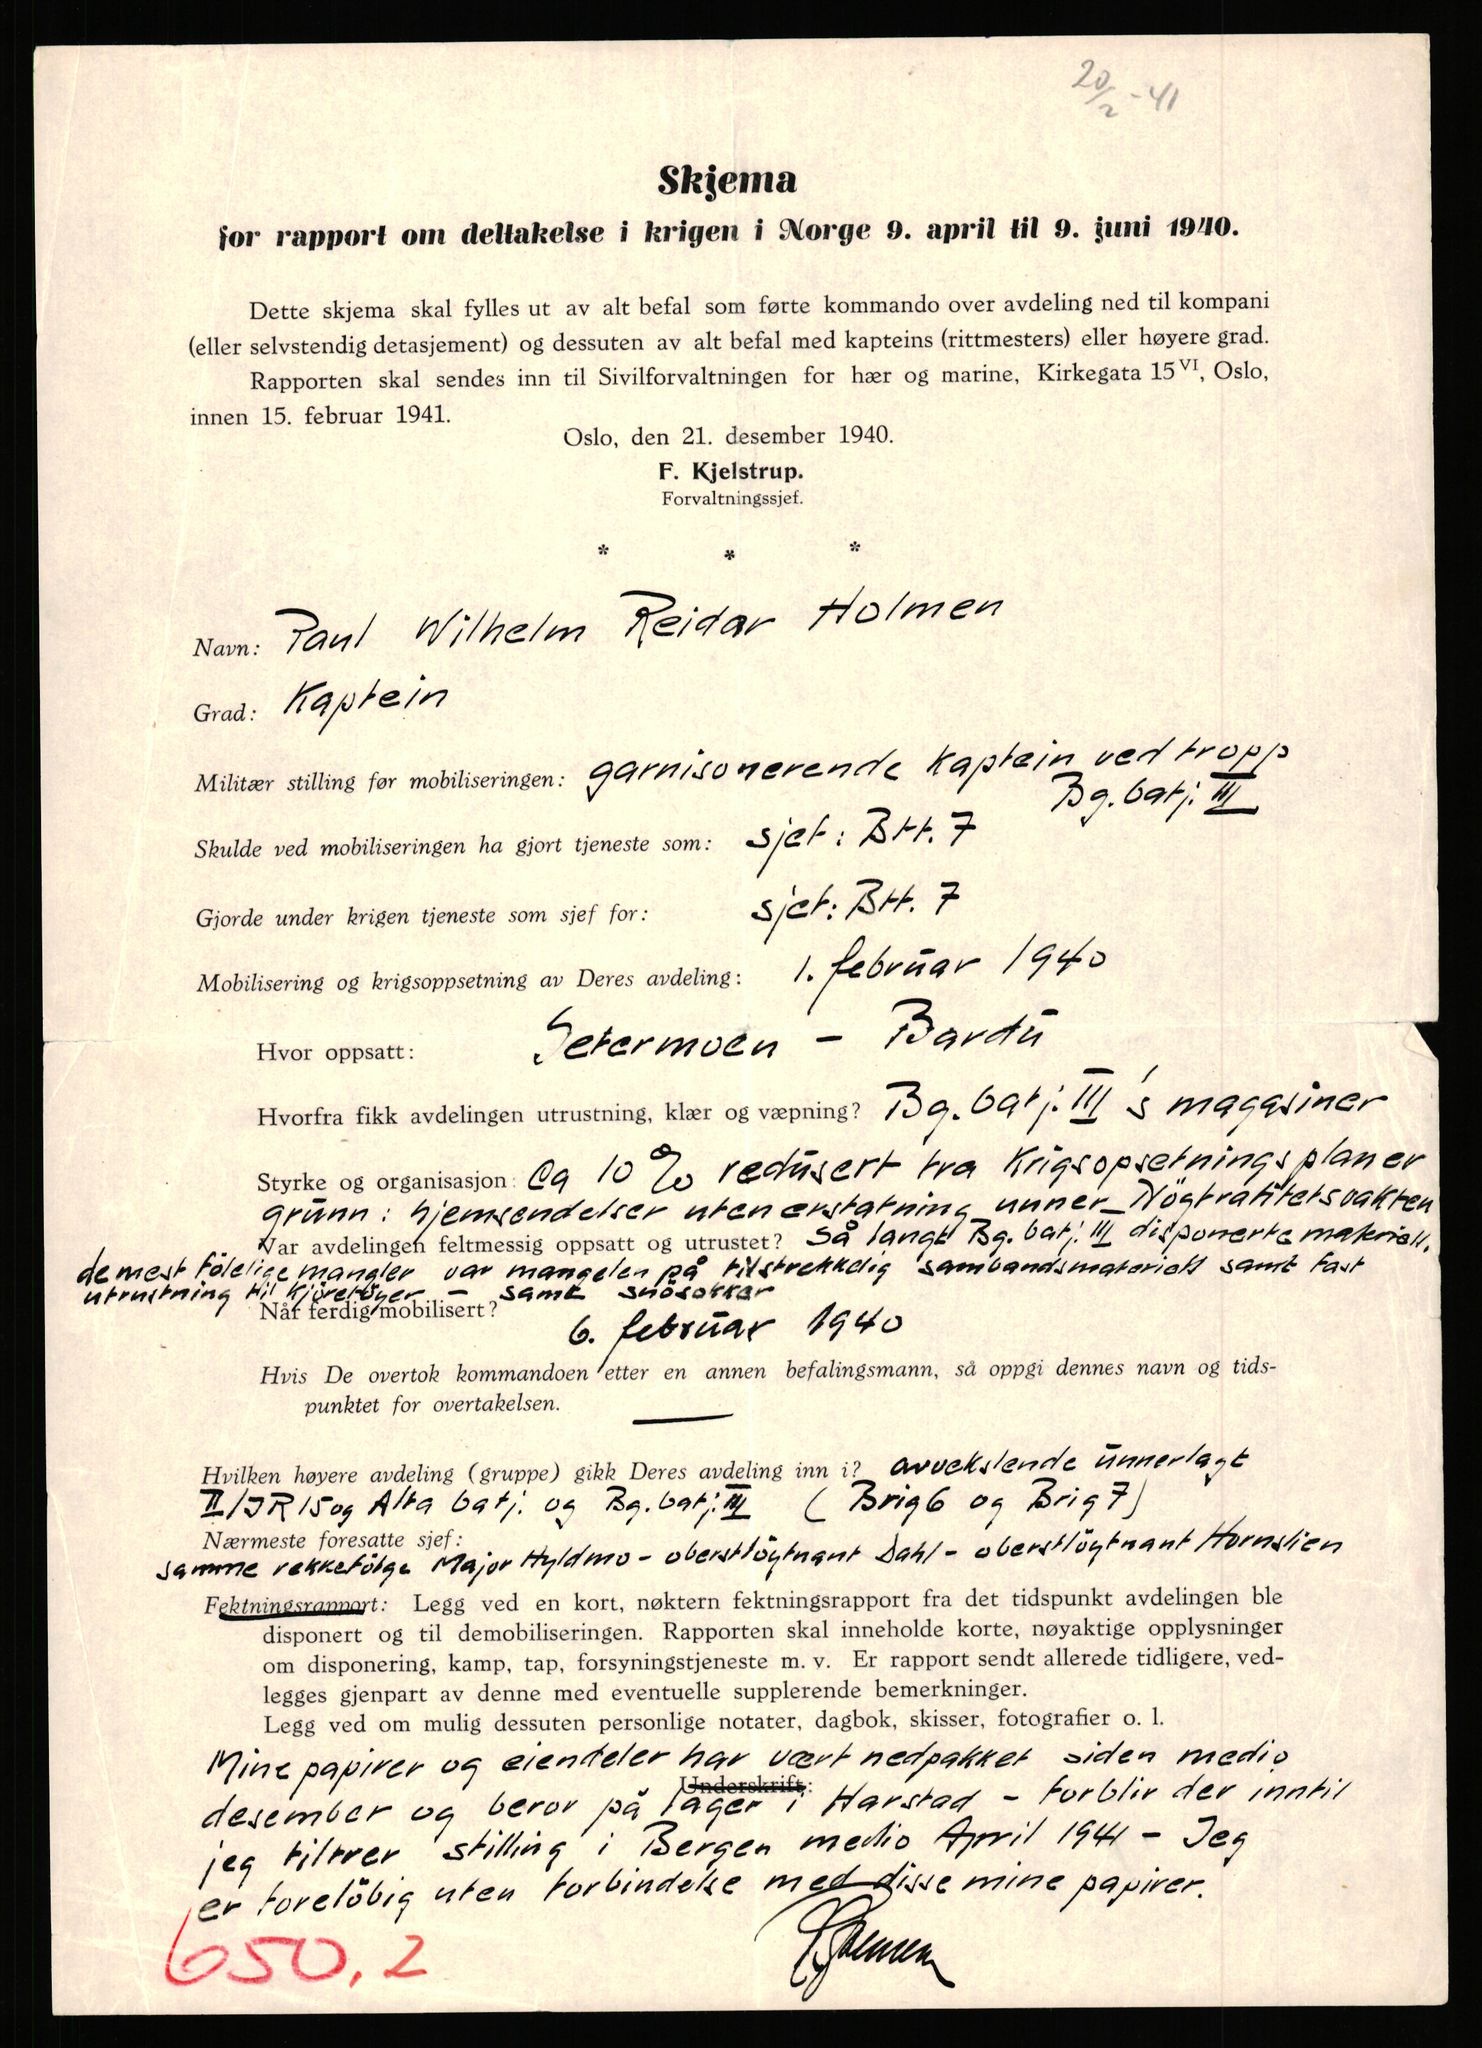 20/2 - 41
Skjema
for rapport om deltakelse i krigen i Norge 9. april til 9. juni 1940.
Dette skjema skal fylles ut av alt befal som førte kommando over avdeling ned til kompani
(eller selvstendig detasjement) og dessuten av alt befal med kapteins (rittmesters) eller høyere grad.
Rapporten skal sendes inn til Sivilforvaltningen for hær og marine, Kirkegata 15 VI, Oslo,
innen 15. februar 1941.
Oslo, den 21. desember 1940.
F. Kjelstrup.
Forvaltningssjef.
* * *
Navn: Paul Wilhelm Reidar Holmen
Grad: Kaptein
Militær stilling før mobiliseringen: garnisonerende kaptein ved tropp
Bg. batj. III
Skulde ved mobiliseringen ha gjort tjeneste som: sjef: Btt. 7
Gjorde under krigen tjeneste som sjef for: sjef: Btt. 7
Mobilisering og krigsoppsetning av Deres avdeling: 1. februar 1940
Hvor oppsatt: Setermoen - Bardu
Hvorfra fikk avdelingen utrustning, klær og væpning? Bg. batj. III's magasiner
Styrke og organisasjon: Ca 10 % redusert fra krigsopsetningsplaner
grunn: hjemsendelser uten erstatning unner Nögtralitetsvakten
Var avdelingen feltmessig oppsatt og utrustet? Så langt Bg. batj. III disponerte materiell.
de mest fölelige mangler var mangelen på tilstrekkelig sambandsmateriell samt fast
utrustning til kjöretöyer - samt snösokker
Når ferdig mobilisert? 6. februar 1940
Hvis De overtok kommandoen etter en annen befalingsmann, så oppgi dennes navn og tids-
punktet for overtakelsen. —
Hvilken høyere avdeling (gruppe) gikk Deres avdeling inn i? avvekslende unnerlagt
II/IR 15 og Alta batj. og Bg. batj. III (Brig 6 og Brig 7)
Nærmeste foresatte sjef:
samme rekkefölge Major Hyldmo - oberstlöytnant Dahl - oberstlöytnant Hornslien
Fektningsrapport: Legg ved en kort, nøktern fektningsrapport fra det tidspunkt avdelingen ble
disponert og til demobiliseringen. Rapporten skal inneholde korte, nøyaktige opplysninger
om disponering, kamp, tap, forsyningstjeneste m. v. Er rapport sendt allerede tidligere, ved-
legges gjenpart av denne med eventuelle supplerende bemerkninger.
Legg ved om mulig dessuten personlige notater, dagbok, skisser, fotografier o. l.
Mine papirer og eiendeler har vært nedpakket siden medio
Underskrift:
desember og beror på lager i Harstad - forblir der inntil
jeg tiltrer stilling i Bergen medio April 1941 - Jeg
er foreløbig uten forbindelse med disse mine papirer.
Holmen
650,2